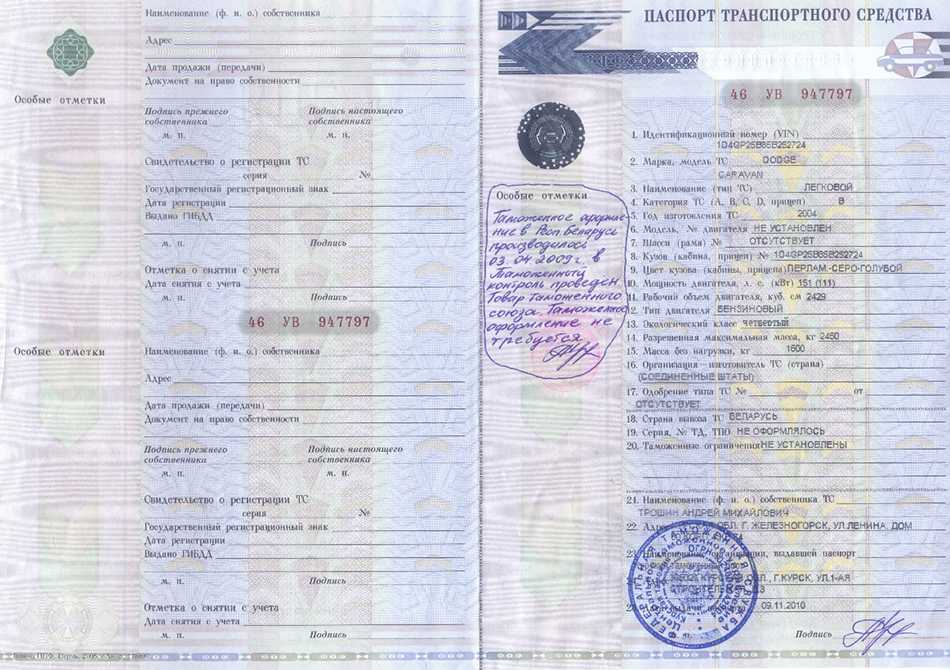 Особые отметки
Наименование (ф. и. о.) собственника
Адрес
Дата продажи (передачи)
Документ на право собственности
Подпись прежнего собственника
Подпись настоящего собственника
м. п.
м. п.
Свидетельство о регистрации ТС
серия №
Государственный регистрационный знак
Дата регистрации
Выдано ГИБДД
м. п. Подпись
Отметка о снятии с учета
Дата снятия с учета
м. п. Подпись
46 УВ 947797
Особые отметки
Наименование (ф. и. о.) собственника
Адрес
Дата продажи (передачи)
Документ на право собственности
Подпись прежнего собственника
Подпись настоящего собственника
м. п.
м. п.
Свидетельство о регистрации ТС
серия №
Государственный регистрационный знак
Дата регистрации
Выдано ГИБДД
м. п. Подпись
Отметка о снятии с учета
Дата снятия с учета
м. п. Подпись
ПАСПОРТ ТРАНСПОРТНОГО СРЕДСТВА
46 УВ 947797
Особые отметки
Таможенное оформле-
ние в Респ Беларусь
производилось
03.04.2009г. в
Таможенный
контроль проведен.
Товар Таможенного
союза. Таможенное
оформление не
требуется
1. Идентификационный номер (VIN)
1D4GP25B85B252724
2. Марка, модель ТС DODGE
CARAVAN
3. Наименование (тип ТС) ЛЕГКОВОЙ
4. Категория ТС (А, В, С, D, прицеп) В
5. Год изготовления ТС 2004
6. Модель, № двигателя НЕ УСТАНОВЛЕН
7. Шасси (рама) № ОТСУТСТВУЕТ
8. Кузов (кабина, прицеп) № 1D4GP25B85B252724
9. Цвет кузова (кабины, прицепа) ПЕРЛАМ.-СЕРО-ГОЛУБОЙ
10. Мощность двигателя, л. с. (кВт) 151 (111)
11. Рабочий объем двигателя, куб. см 2429
12. Тип двигателя БЕНЗИНОВЫЙ
13. Экологический класс четвертый
14. Разрешенная максимальная масса, кг 2450
15. Масса без нагрузки, кг 1600
16. Организация – изготовитель ТС (страна)
(СОЕДИНЕННЫЕ ШТАТЫ)
17. Одобрение типа ТС № от
ОТСУТСТВУЕТ
18. Страна вывоза ТС БЕЛАРУСЬ
19. Серия, № ТД, ТПО НЕ ОФОРМЛЯЛОСЬ
20. Таможенные ограничения НЕ УСТАНОВЛЕНЫ
21. Наименование (ф. и. о.) собственника ТС
ТРОШИН АНДРЕЙ МИХАЙЛОВИЧ
22. ОБЛ. Г. ЖЕЛЕЗНОГОРСК, УЛ.ЛЕНИНА, ДОМ
23. Наименование организации, выдавшей паспорт
КУРСКАЯ ОБЛ., Г.КУРСК, УЛ.1-АЯ
09.11.2010
Подпись